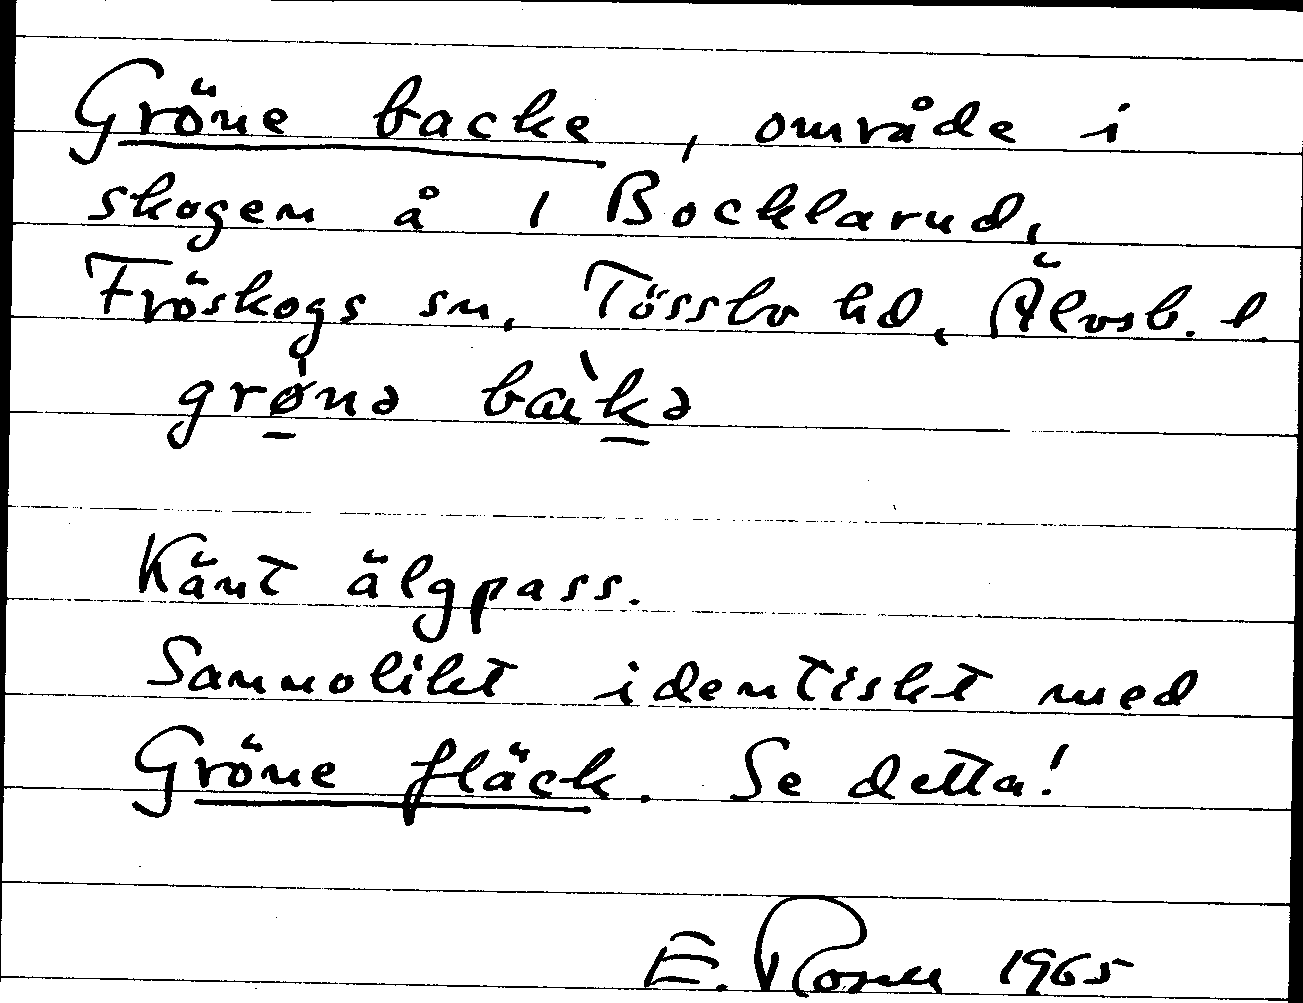 Gröne backe, område i
skogen å 1 Bocklarud,
Fröskogs sn, Tössbo hd, Älvsb. l.
Känt älgpass.
Sannolikt identiskt med
Gröne fläck. Se detta!
E. 1965